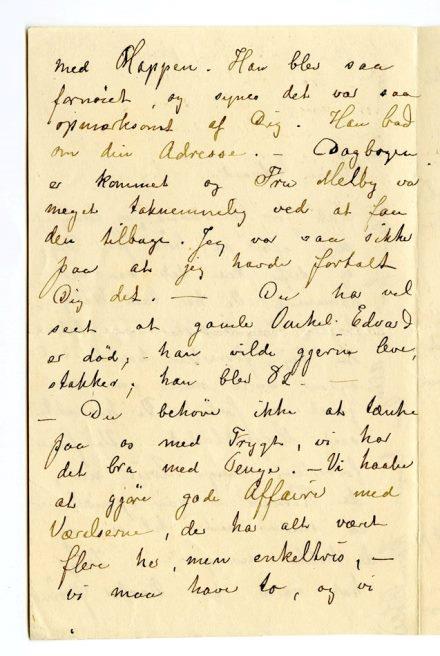 med Mappen. Han blev saa
fornøiet, og synes det var saa
opmærksomt af Dig. Han bad
om din Adresse. – Dagbogen
er kommet og Fru Melby var
meget taknemmelig ved at faa
den tilbage. Jeg var saa sikker
paa at jeg havde fortalt
Dig det. — Du har vel
seet at gamle Onkel Edvard
er død; – han vilde gjerne leve,
stakker; han blev 82. —
– Du behøver ikke at tænke
paa os med Frygt, vi har
det bra med Penge. – Vi haaber
at gjøre gode Affairer med
Værelserne, der har alt været
flere her, men enkeltvis, –
vi maa have to, og vi